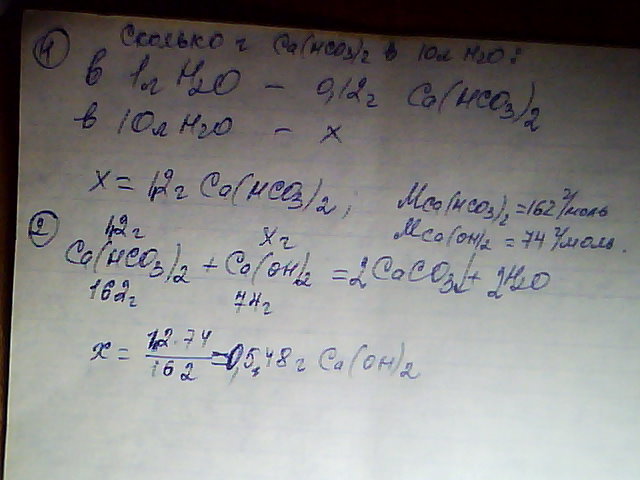 1 Сколько г Ca(HCO3)2 в 10л H2O:
в 1л H2O – 0,12г Ca(HCO3)2
в 10л H2O – x
x = 1,2г Ca(HCO3)2; MCa(HCO3)2 = 162 г/моль
MCa(OH)2 = 74 г/моль.
2 1,2г xг
Ca(HCO3)2 + Ca(OH)2 = 2CaCO3↓ + 2H2O
162г 74г
x = 1,2·74 / 162 = 0,548г Ca(OH)2